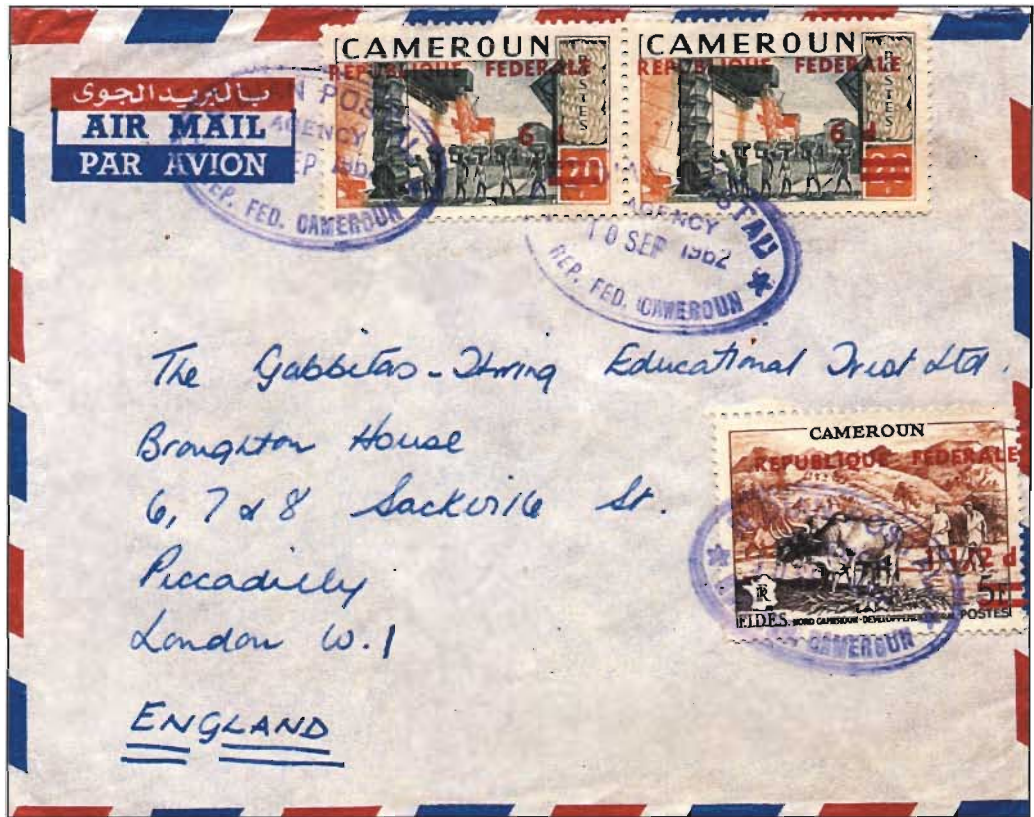 CAMEROUN
REPUBLIQUE FEDERALE
POSTES
6 d
20
CAMEROUN
REPUBLIQUE FEDERALE
POSTES
6 d
20
بالبريد الجوى
AIR MAIL
PAR AVION
POSTAL
AGENCY
SEP 196
REP. FED. CAMEROUN
POSTAL
AGENCY
10 SEP 1962
REP. FED. CAMEROUN
The Gabbitas-Thring Educational Trust Ltd.
Broughton House
6, 7 & 8 Sackville St.
Piccadilly
London W.1
ENGLAND
CAMEROUN
REPUBLIQUE FEDERALE
1-1/2 d
5F
F.I.D.E.S. NORD CAMEROUN-DEVELOPPEMENT POSTES
CAMEROUN